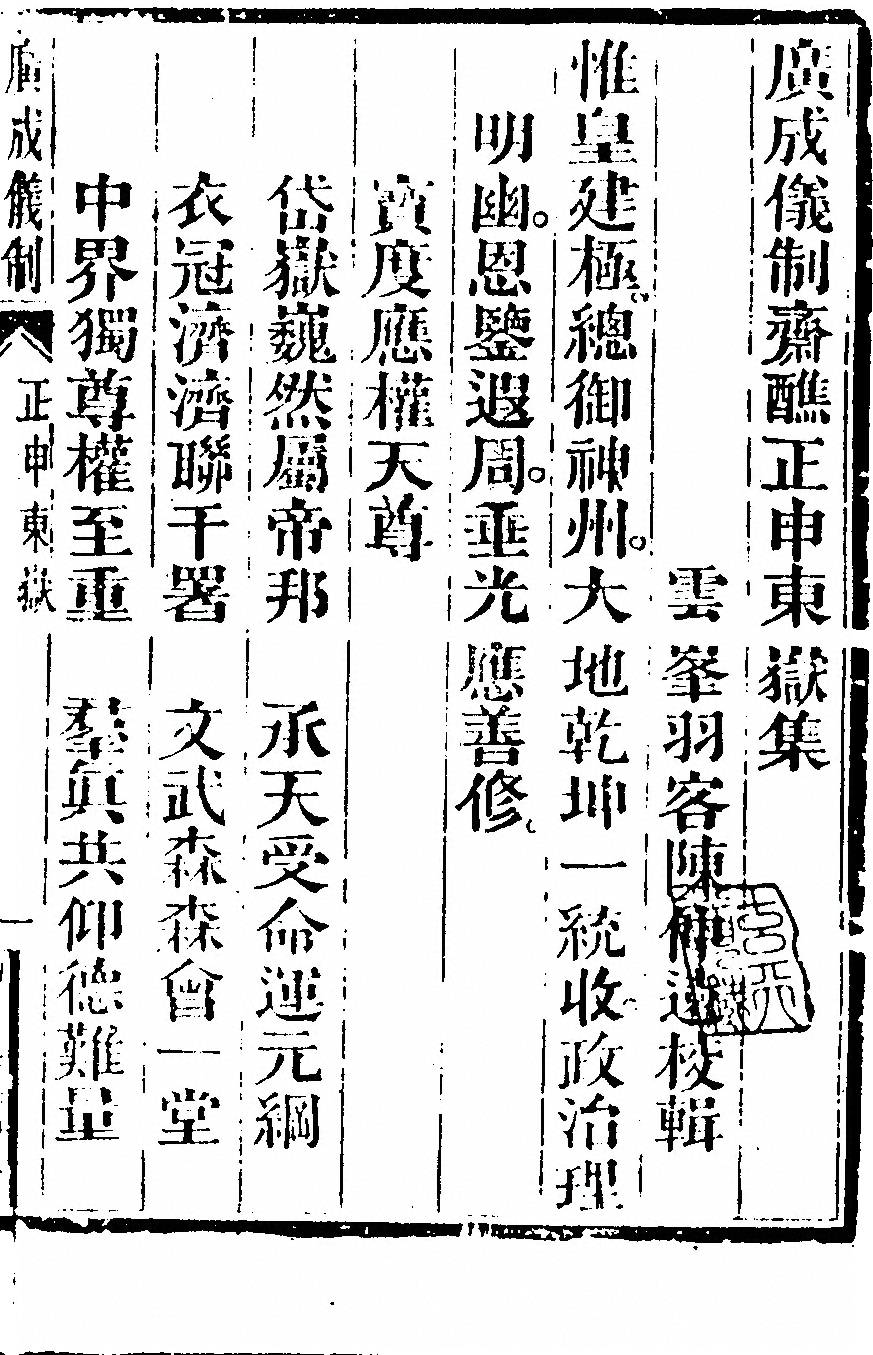 廣成儀制齋醮正申東嶽集
雲峯羽客陳仲遠校輯
惟皇建極。總御神州。大地乾坤一統收。政治理
明幽。恩鑒遐周。垂光應善修。
寶度應權天尊
岱嶽巍然屬帝邦 承天受命運元綱
衣冠濟濟聯千署 文武森森會一堂
中界獨尊權至重 羣眞共仰德難量
廣成儀制 正申東嶽 一